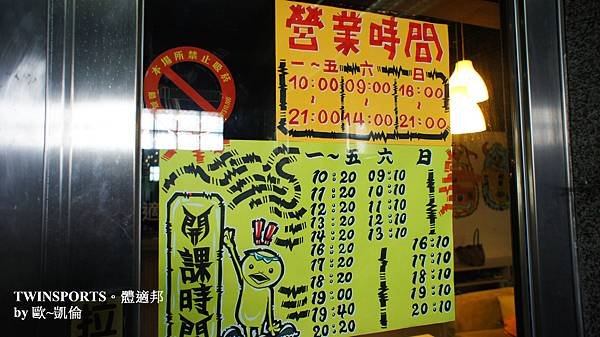 營業時間
一~五 六 日
10:00 09:00 16:00
~ ~ ~
21:00 14:00 21:00
本場所禁止吸菸
一~五 六 日
10:20 09:10
11:20 10:10
12:20 11:10
13:20 12:10
14:20 13:10
16:20 16:10
17:20 17:10
18:20 18:10
19:00 19:10
19:40 20:10
20:20
開課時間
TWINSPORTS。體適邦
by 歐~凱倫